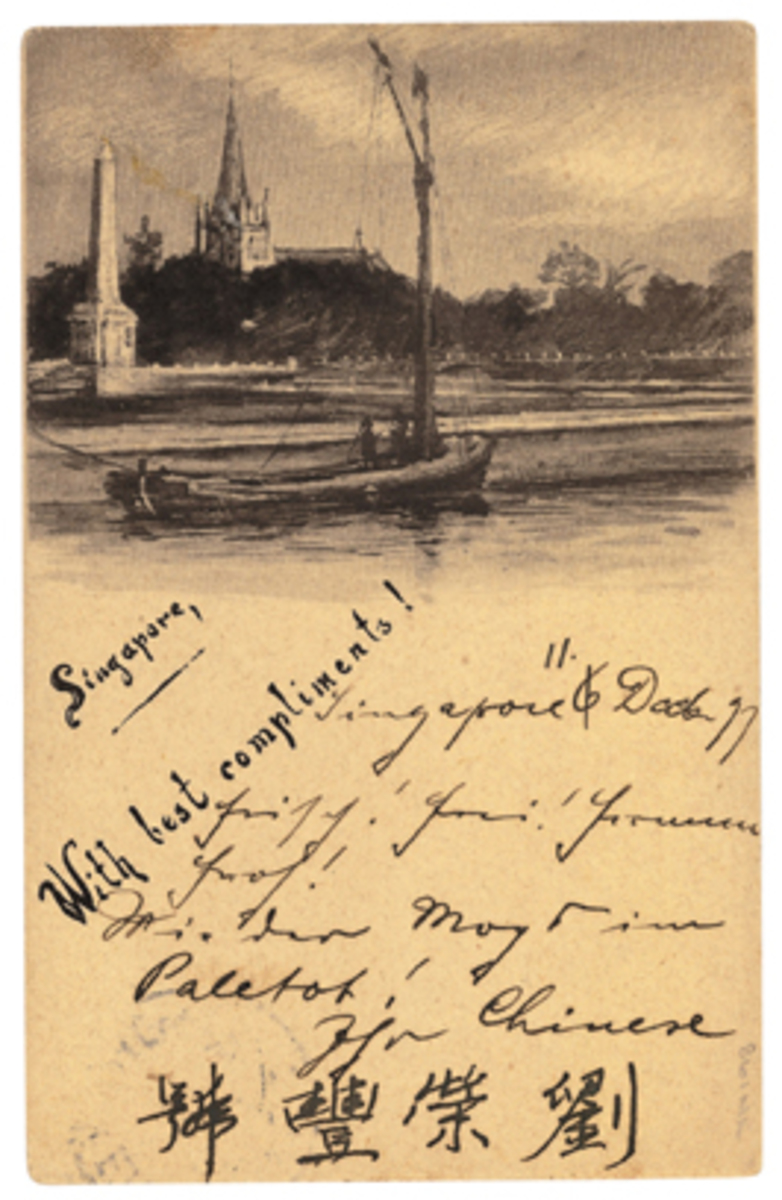 Singapore,
With best compliments!
11.
Singapore 6 Decbr 97
Frisch! Frei! Fromm
Froh!
Wie der Mops im
Paletot!
Ihr Chinese
號豐榮劉